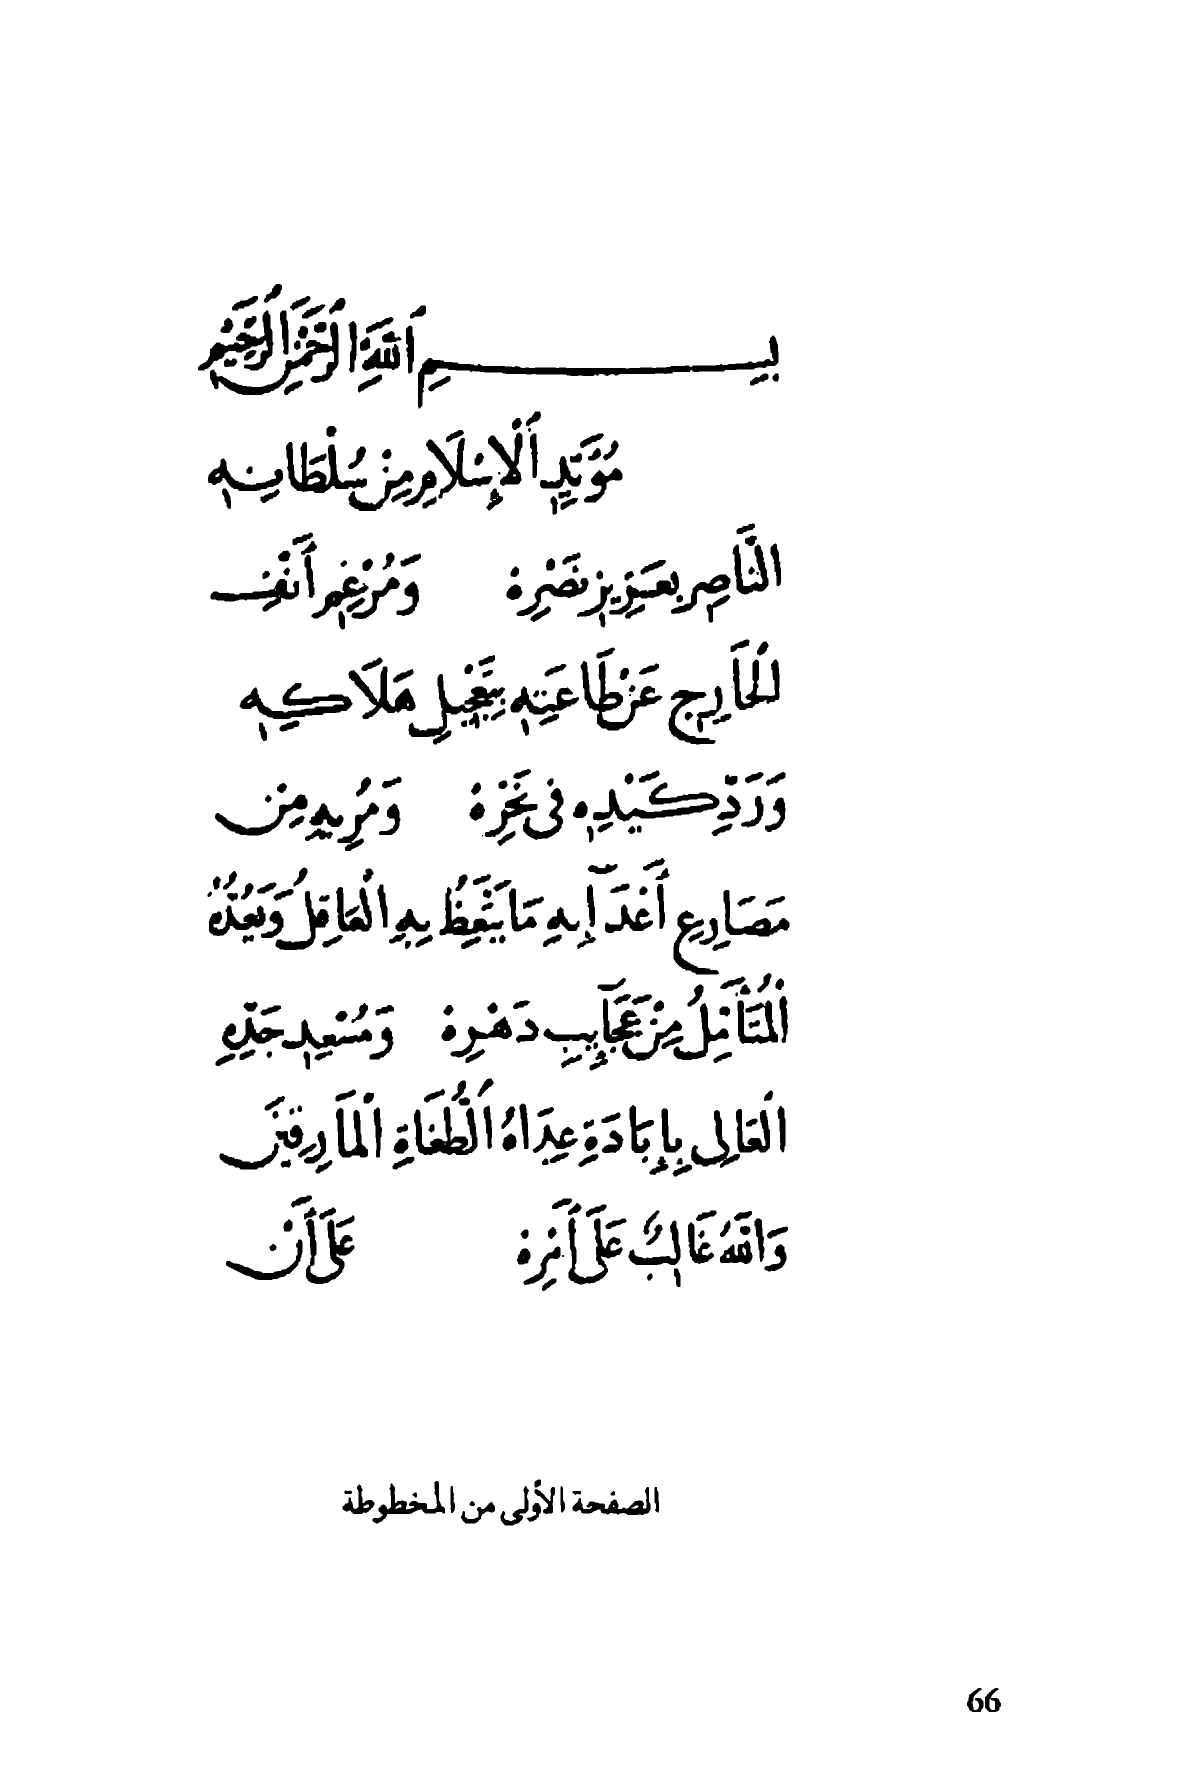 بِسْمِ ٱللَّهِ ٱلرَّحْمَٰنِ ٱلرَّحِيمِ
مُؤَيِّدِ ٱلْإِسْلَامِ مِنْ سُلْطَانِهِ
النَّاصِرِ بِعَزِيزِ نَصْرِهِ وَمُرْغِمِ أَنْفِ
الْخَارِجِ عَنْ طَاعَتِهِ بِتَعْجِيلِ هَلَاكِهِ
وَرَدِّ كَيْدِهِ فِي نَحْرِهِ وَمُرِيهِ مِنْ
مَصَارِعِ أَعْدَآئِهِ مَا يَتَّعِظُ بِهِ الْعَاقِلُ وَيَعُدُّهُ
الْمُتَأَمِّلُ مِنْ عَجَآئِبِ دَهْرِهِ وَمُسْعِدِ جَدِّهِ
الْعَالِي بِإِبَادَةِ عِدَاهُ ٱلطُّغَاةِ الْمَارِقِينَ
وَاللَّهُ غَالِبٌ عَلَى أَمْرِهِ عَلَى أَنْ
الصفحة الأولى من المخطوطة
66